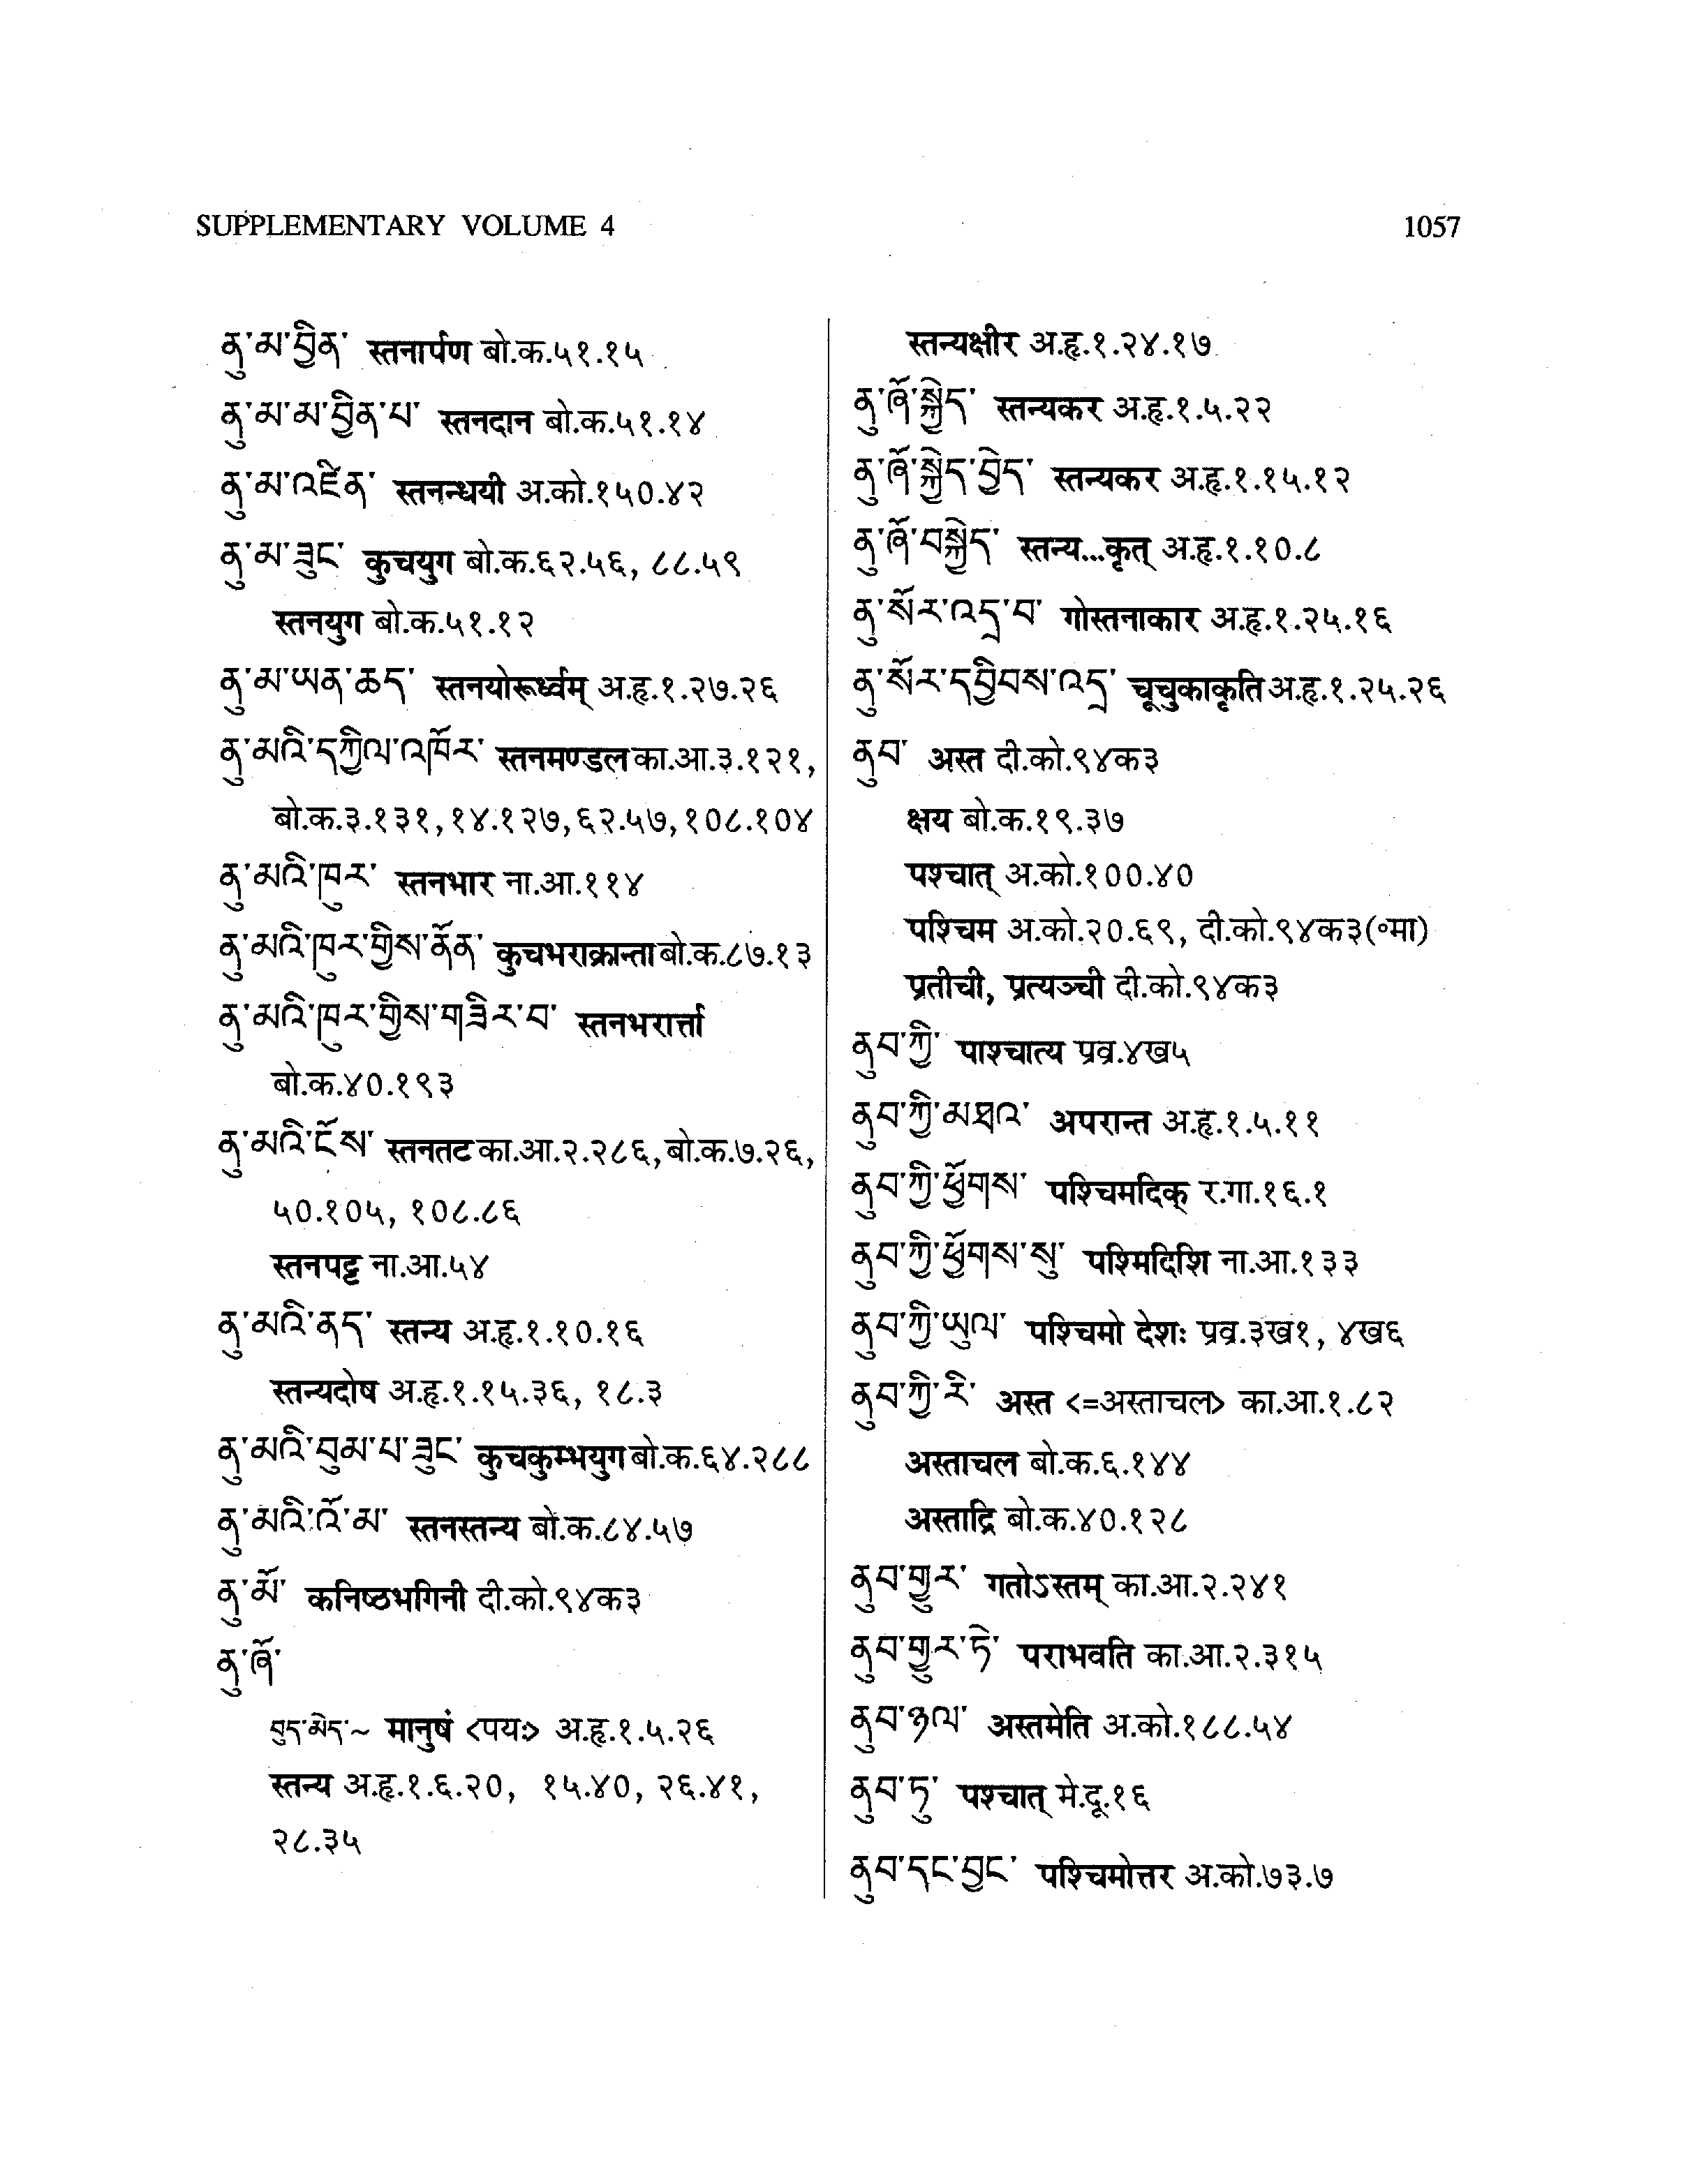 SUPPLEMENTARY VOLUME 4
1057
ནུ་མ་བྱིན་ स्तनार्पण बो.क.५१.१५
ནུ་མ་མ་བྱིན་པ་ स्तनदान बो.क.५१.१४
ནུ་མ་འཛིན་ स्तनन्धयी अ.को.१५०.४२
ནུ་མ་ཟུང་ कुचयुग बो.क.६२.५६, ८८.५९
स्तनयुग बो.क.५१.१२
ནུ་མ་ཡན་ཆད་ स्तनयोरूर्ध्वम् अ.हृ.१.२७.२६
ནུ་མའི་དཀྱིལ་འཁོར་ स्तनमण्डल का.आ.३.१२१,
बो.क.३.१३१, १४.१२७, ६२.५७, १०८.१०४
ནུ་མའི་ཁུར་ स्तनभार ना.आ.११४
ནུ་མའི་ཁུར་གྱིས་ནོན་ कुचभराक्रान्ता बो.क.८७.१३
ནུ་མའི་ཁུར་གྱིས་གཟིར་བ་ स्तनभरार्त्ता
बो.क.४०.१९३
ནུ་མའི་ངོས་ स्तनतट का.आ.२.२८६, बो.क.७.२६,
५०.१०५, १०८.८६
स्तनपट्ट ना.आ.५४
ནུ་མའི་ནད་ स्तन्य अ.हृ.१.१०.१६
स्तन्यदोष अ.हृ.१.१५.३६, १८.३
ནུ་མའི་བུམ་པ་ཟུང་ कुचकुम्भयुग बो.क.६४.२८८
ནུ་མའི་འོ་མ་ स्तनस्तन्य बो.क.८४.५७
ནུ་མོ་ कनिष्ठभगिनी दी.को.९४क३
ནུ་ཞོ་
བུད་མེད་~ मानुषं <पयः> अ.हृ.१.५.२६
स्तन्य अ.हृ.१.६.२०, १५.४०, २६.४१,
२८.३५
स्तन्यक्षीर अ.हृ.१.२४.१७
ནུ་ཞོ་སྐྱེད་ स्तन्यकर अ.हृ.१.५.२२
ནུ་ཞོ་སྐྱེད་བྱེད་ स्तन्यकर अ.हृ.१.१५.१२
ནུ་ཞོ་བསྐྱེད་ स्तन्य...कृत् अ.हृ.१.१०.८
ནུ་སོར་འདྲ་བ་ गोस्तनाकार अ.हृ.१.२५.१६
ནུ་སོར་དབྱིབས་འདྲ་ चूचुकाकृति अ.हृ.१.२५.२६
ནུབ་ अस्त दी.को.९४क३
क्षय बो.क.१९.३७
पश्चात् अ.को.१००.४०
पश्चिम अ.को.२०.६९, दी.को.९४क३(॰मा)
प्रतीची, प्रत्यञ्ची दी.को.९४क३
ནུབ་ཀྱི་ पाश्चात्य प्रव्र.४ख५
ནུབ་ཀྱི་མཐའ་ अपरान्त अ.हृ.१.५.११
ནུབ་ཀྱི་ཕྱོགས་ पश्चिमदिक् र.गा.१६.१
ནུབ་ཀྱི་ཕྱོགས་སུ་ पश्मिदिशि ना.आ.१३३
ནུབ་ཀྱི་ཡུལ་ पश्चिमो देशः प्रव्र.३ख१, ४ख६
ནུབ་ཀྱི་རི་ अस्त <=अस्ताचल> का.आ.१.८२
अस्ताचल बो.क.६.१४४
अस्ताद्रि बो.क.४०.१२८
ནུབ་གྱུར་ गतोऽस्तम् का.आ.२.२४१
ནུབ་གྱུར་ཏེ་ पराभवति का.आ.२.३१५
ནུབ་ཉལ་ अस्तमेति अ.को.१८८.५४
ནུབ་ཏུ་ पश्चात् मे.दू.१६
ནུབ་དང་བྱང་ पश्चिमोत्तर अ.को.७३.७